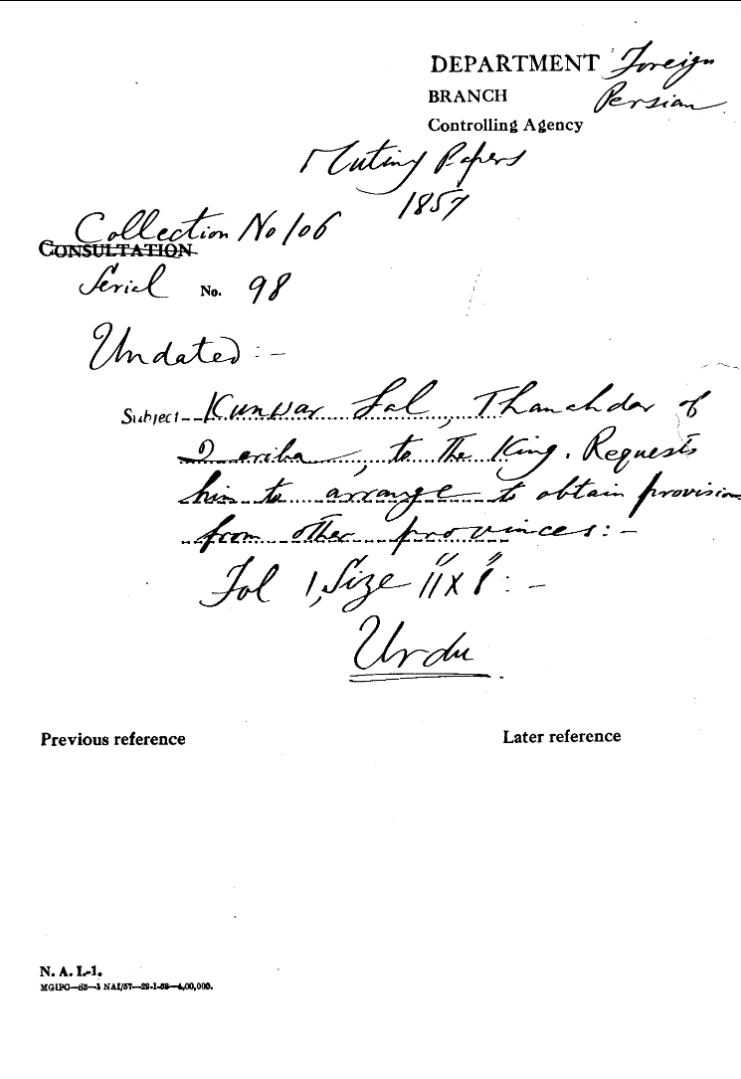 DEPARTMENT Foreign
BRANCH Persian
Controlling Agency
Mutiny Papers
1857
Collection No 106
CONSULTATION
Serial No. 98
Undated :-
Subject Kunwar Lal, Thanehdar of
Dariba, to the King. Requests
him to arrange to obtain provision
from other provinces:-
Fol 1, Size 11" x 8" :-
Urdu
Previous reference Later reference
N. A. I.-1.
MGIPC—S3—3 NAI/57—29-1-58—4,00,000.